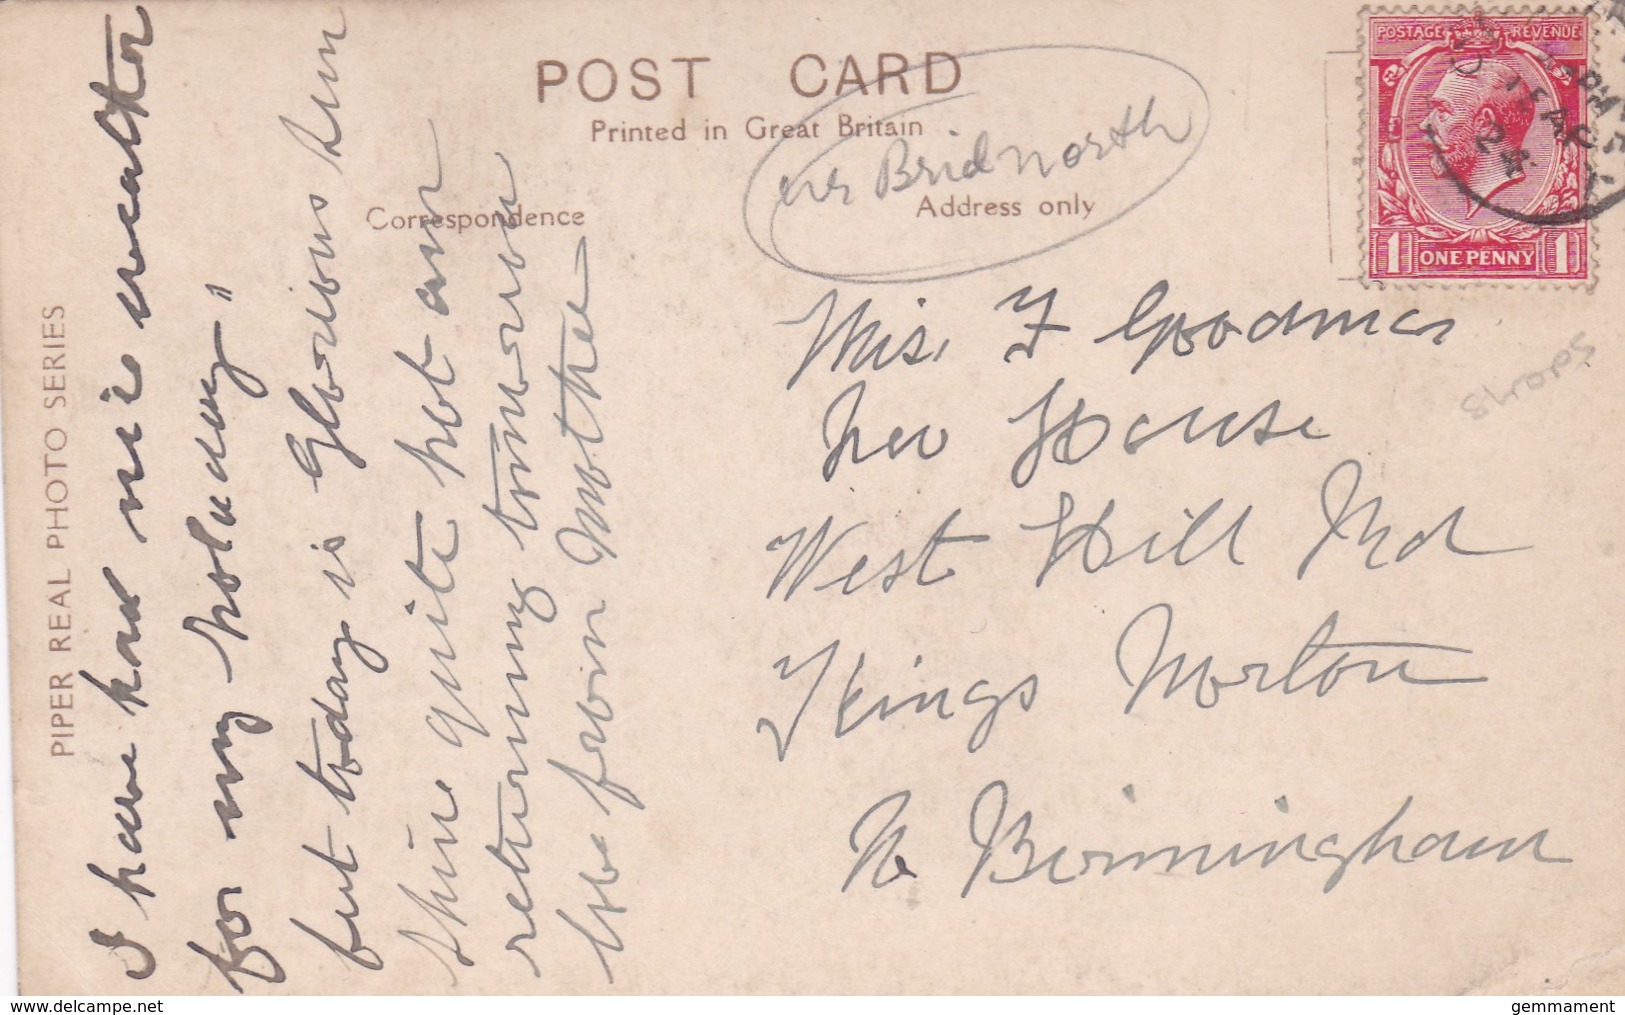 POST CARD
Printed in Great Britain
nr Bridnorth
Correspondence
Address only
POSTAGE REVENUE
1 ONE PENNY 1
PIPER REAL PHOTO SERIES
I have had nice weather
for my holuday"
but today is Glorious Sun
Shine quite hot am
returning tomorow
love from Mother
Miss F Goodman
New House
West Hill Rd
Kings Norton
Nr Birmingham
SHOPS
gemmament